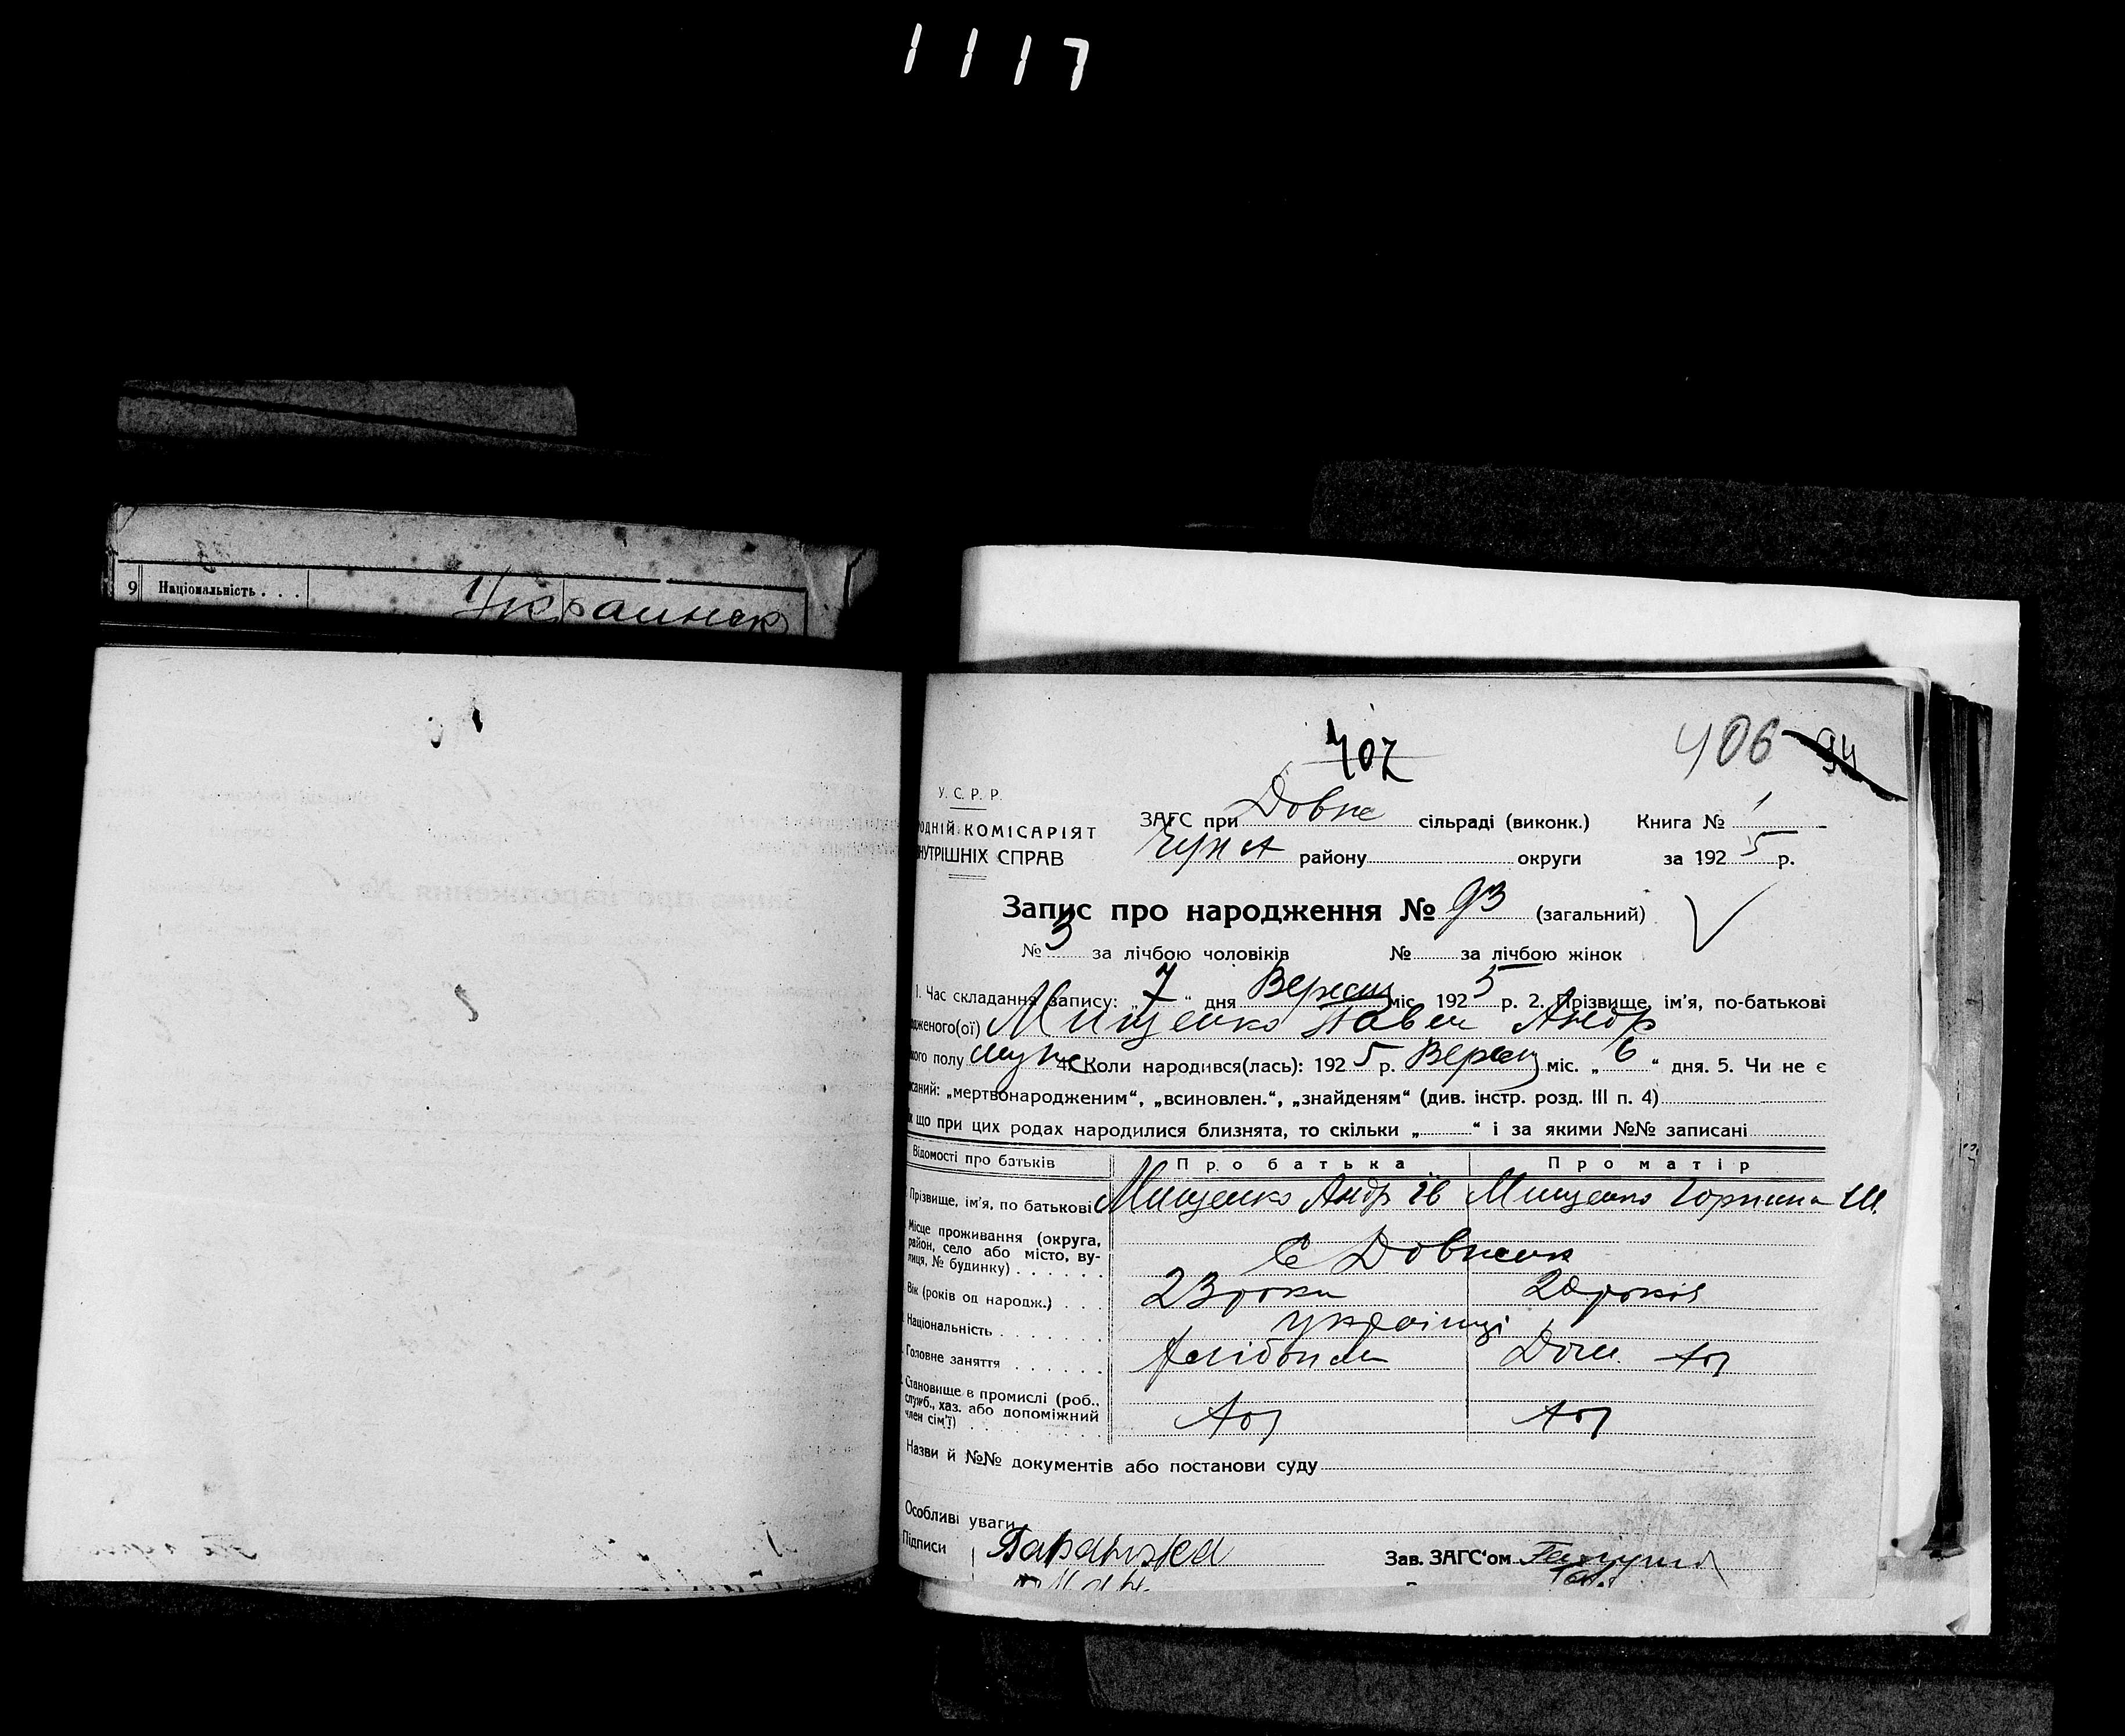 1117
9 Національність . . .
Украинск
407
406 94
У. С. Р. Р.
ОДНІЙ КОМІСАРІЯТ
НУТРІШНІХ СПРАВ
ЗАГС при Довже сільраді (виконк.) Книга № 1
району округи за 1925 р.
Запис про народження № 93 (загальний)
№ 3 за лічбою чоловіків № за лічбою жінок
1. Час складання запису: „7“ дня Вересня міс. 1925 р. 2. Прізвище, ім'я, по-батькові
одженого(ої) Мищенко Павел Андр
кого полу муж 4. Коли народився(лась): 1925 р. Вересня міс. „6“ дня. 5. Чи не є
исаний: „мертвонародженим“, „всиновлен.“, „знайденям“ (див. інстр. розд. III п. 4)
к що при цих родах народилися близнята, то скільки „ “ і за якими №№ записані
Відомості про батьків Про батька Про матір
Прізвище, ім'я, по батькові Мищенко Андр Ів Мищенко Горпина Ш.
Місце проживання (округа,
район, село або місто, ву-
лиця, № будинку) . . . . . .
С Довжик
Вік (років од народж.) . . . 23 роки 20 років
Національність . . . . . . . українці
Головне заняття . . . . . . Хлібороб Дом.
Становище в промислі (роб.,
служб., хаз. або допоміжний
член сім'ї) . . . . . . . . .
Назви й №№ документів або постанови суду
Особливі уваги
Підписи Зав. ЗАГС'ом